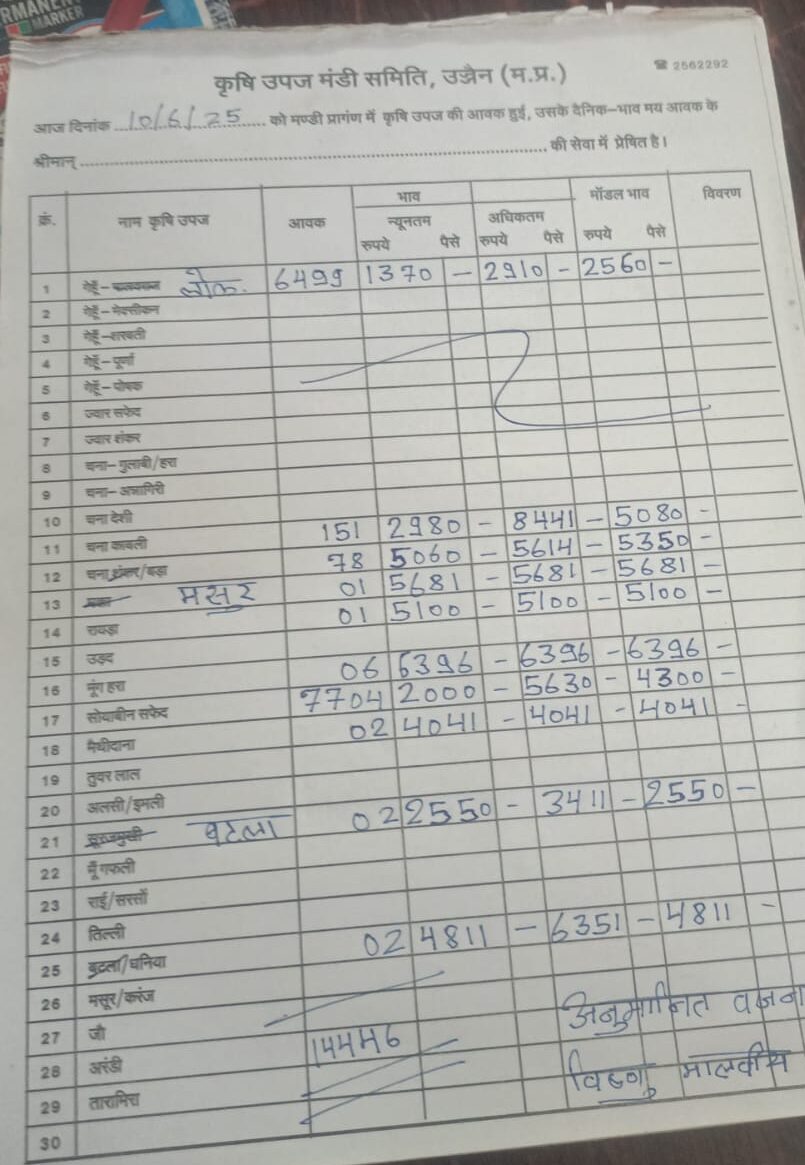 RMANEN
MARKER
कृषि उपज मंडी समिति, उज्जैन (म.प्र.)
☎ 2562292
आज दिनांक 10/6/25 को मण्डी प्रागंण में कृषि उपज की आवक हुई, उसके दैनिक-भाव मय आवक के
श्रीमान् की सेवा में प्रेषित है।
क्रं. नाम कृषि उपज आवक भाव मॉडल भाव विवरण
न्यूनतम अधिकतम
रुपये पैसे रुपये पैसे रुपये पैसे
1 गेहूँ- लोक. 6499 1370 - 2910 - 2560 -
2 गेहूँ-मेक्सीकन
3 गेहूँ-शरबती
4 गेहूँ-पूर्णा
5 गेहूँ-पोषक
6 ज्वार सफेद
7 ज्वार शंकर
8 चना-गुलाबी/हरा
9 चना-अन्नागिरी
10 चना देशी
11 चना काबली 151 2980 - 8441 - 5080 -
12 चना शंकर/बड़ा 78 5060 - 5614 - 5350 -
13 मक्का मसुर 01 5681 - 5681 - 5681 -
14 रायड़ा 01 5100 - 5100 - 5100 -
15 उड़द
16 मूंग हरा 06 6396 - 6396 - 6396 -
17 सोयाबीन सफेद 7704 2000 - 5630 - 4300 -
18 मैथीदाना 02 4041 - 4041 - 4041 -
19 तुवर लाल
20 अलसी/इमली
21 सूरजमुखी बटला 02 2550 - 3411 - 2550 -
22 मूँगफली
23 राई/सरसों
24 तिल्ली
25 बुटला/धनिया 02 4811 - 6351 - 4811 -
26 मसूर/करंज
27 जौ
28 अरंडी 14446
29 तारामिरा
30
अनुमानित वजन
विष्णु मालवीय